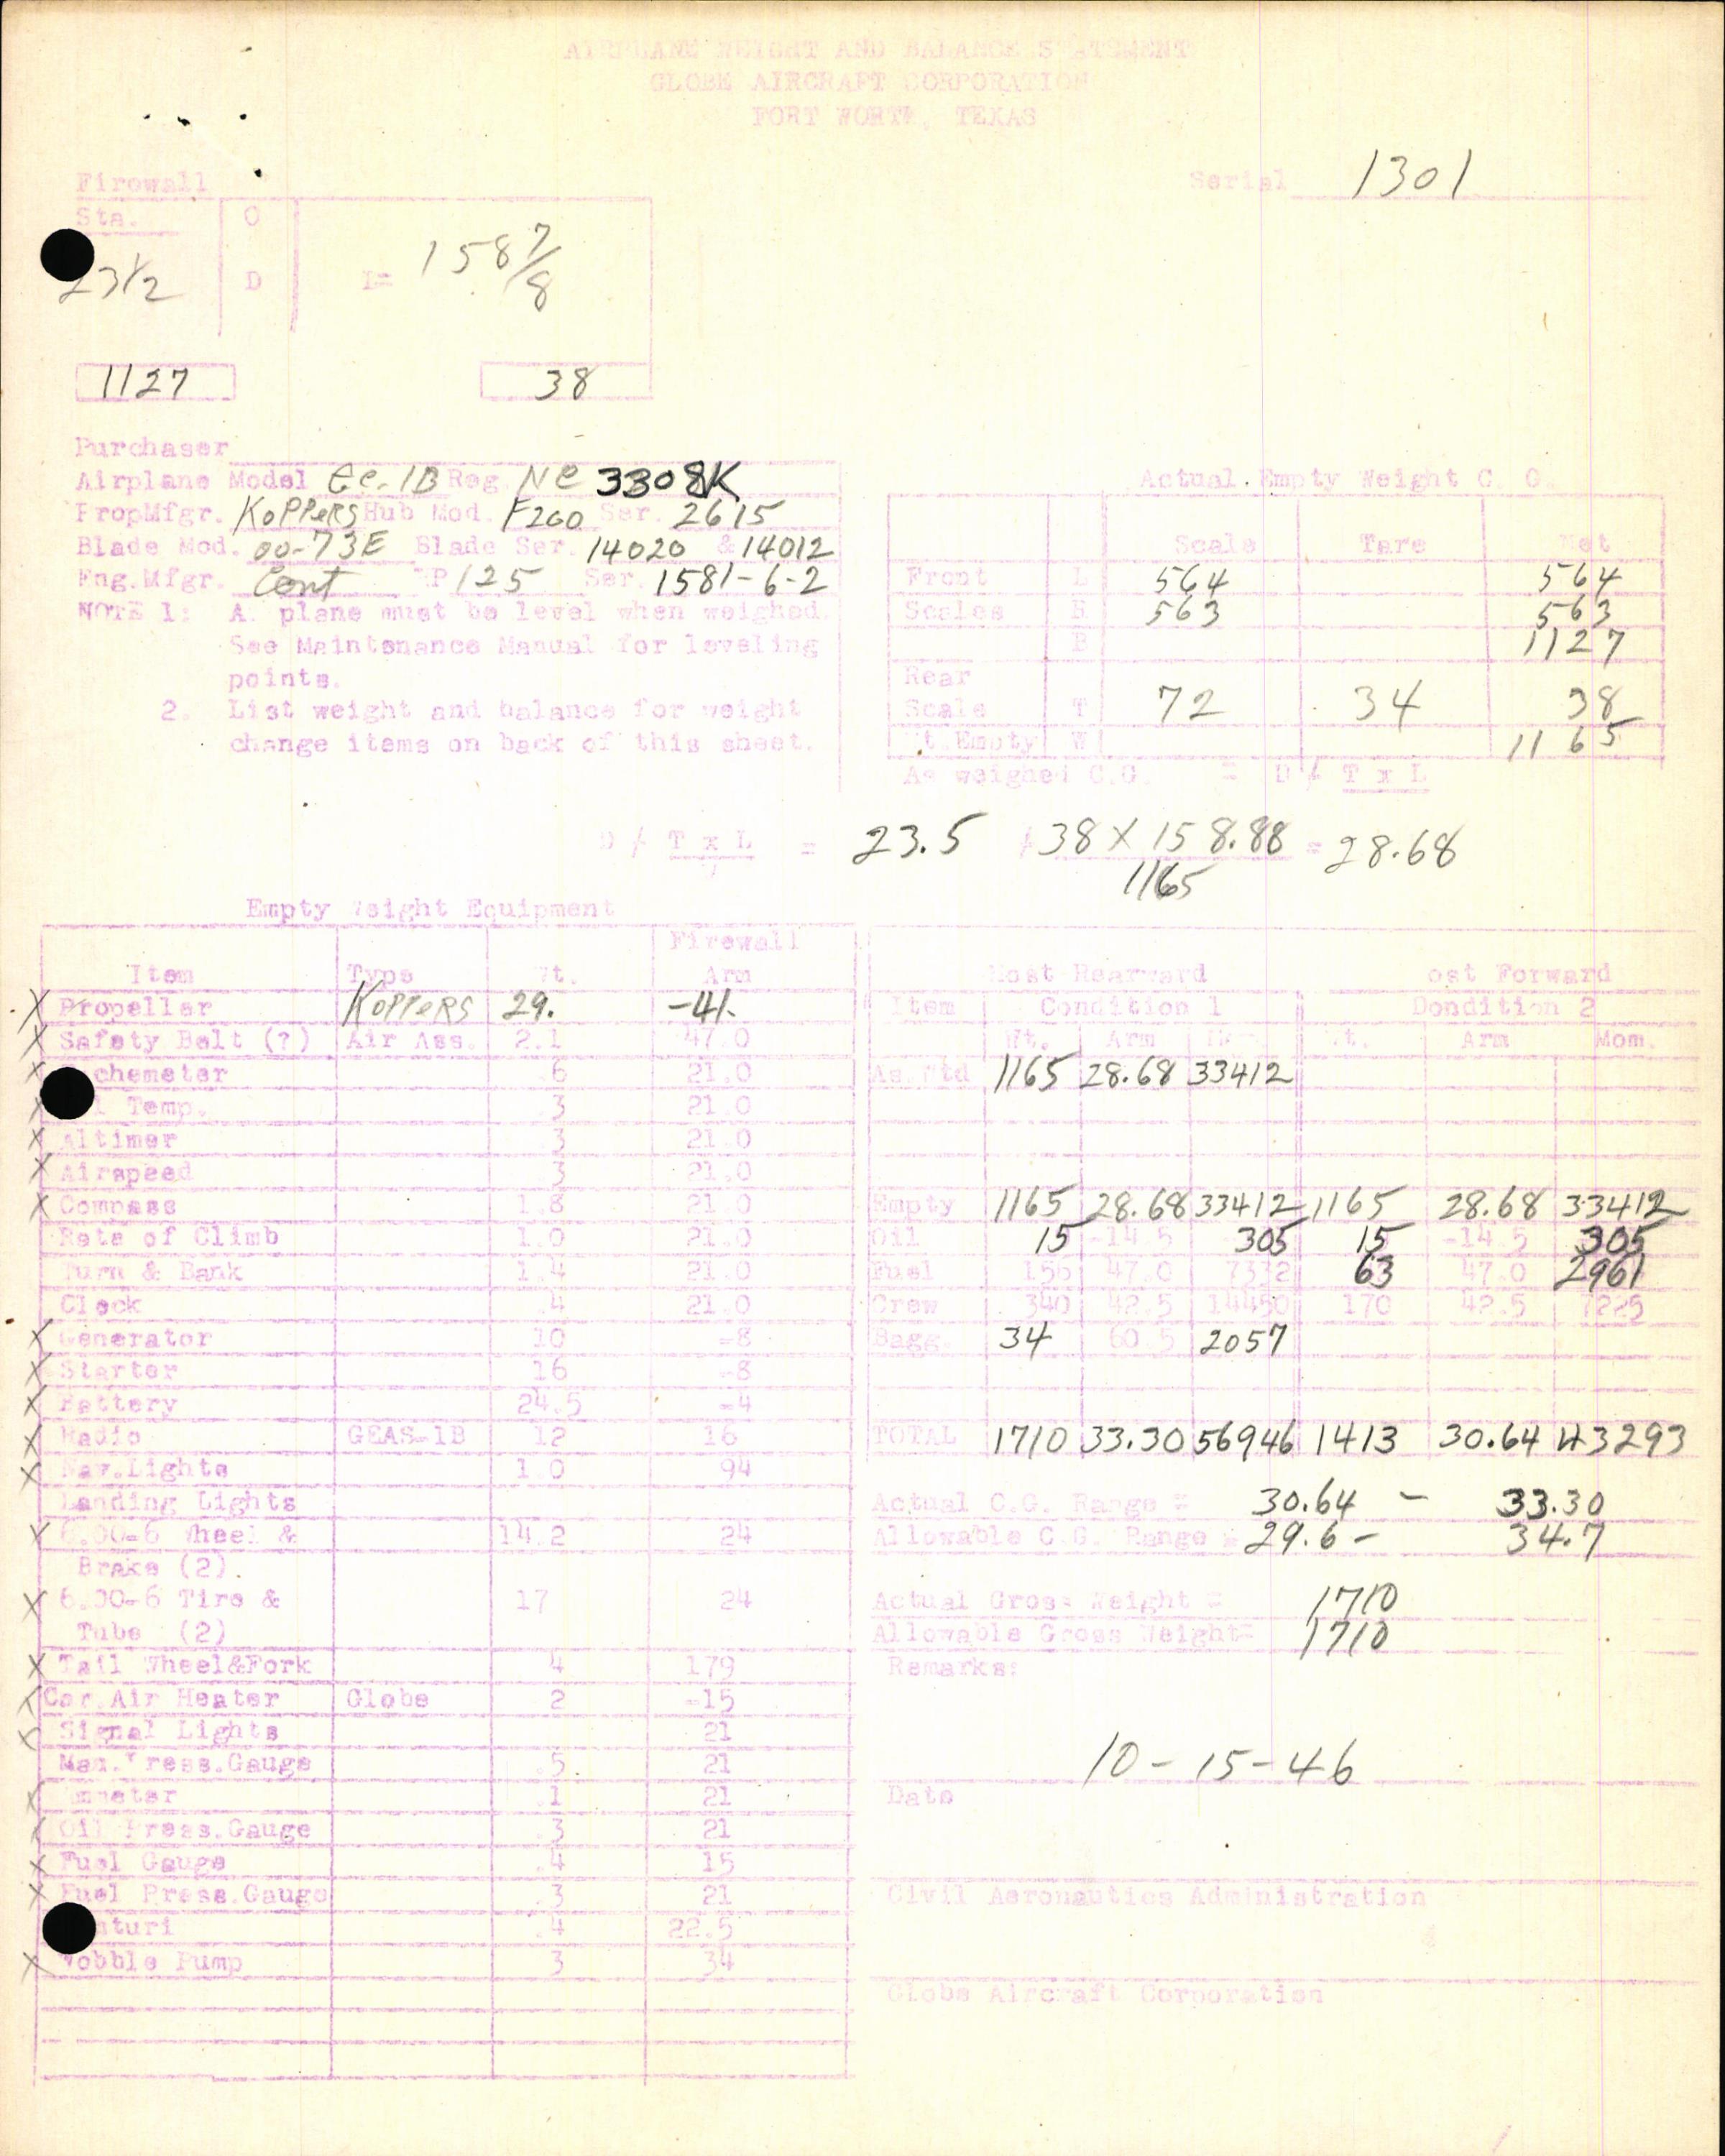 AIRPLANE WEIGHT AND BALANCE STATEMENT
GLOBE AIRCRAFT CORPORATION
FORT WORTH, TEXAS
Serial 1301
Firewall
Sta. O
23 1/2 D L= 158 7/8
1127 38
Purchaser
Airplane Model Gc-1B Reg. NC 3308K
PropMfgr. KOPPERS Hub Mod. F200 Ser. 2615
Blade Mod. 00-73E Blade Ser. 14020 & 14012
Eng.Mfgr. Cont HP 125 Ser. 1581-6-2
NOTE 1: A. plane must be level when weighed.
See Maintenance Manual for leveling
points.
2. List weight and balance for weight
change items on back of this sheet.
Actual Empty Weight C. G.
Scale Tare Net
Front L 564 564
Scales R 563 563
1127
Rear
Scale T 72 34 38
Wt.Empty W 1165
As weighed C.G. = D / T x L
D / T x L = 23.5 / 38 X 158.88 = 28.68
1165
Empty Weight Equipment
Firewall
Item Type Wt. Arm
X Propeller KOPPERS 29. -41.
X Safety Belt (?) Air Ass. 2.1 47.0
X chometer .6 21.0
Temp. .3 21.0
X Altimer .3 21.0
X Airspeed .3 21.0
X Compass 1.8 21.0
Rate of Climb 1.0 21.0
Turn & Bank 1.4 21.0
Clock .4 21.0
X Generator 10 -8
X Starter 16 -8
X Battery 24.5 -4
X Radio GEAS-1B 12 16
X Nav.Lights 1.0 94
Landing Lights
X 6.00-6 Wheel & 14.2 24
Brake (2).
X 6.00-6 Tire & 17 24
Tube (2)
X Tail Wheel&Fork 4 179
X Car.Air Heater Globe 2 -15
X Signal Lights 21
Man.Press.Gauge .5 21
X Ammeter .1 21
X Oil Press.Gauge .3 21
X Fuel Gauge .4 15
X Fuel Press.Gauge .3 21
nturi .4 22.5
X Wobble Pump 3 34
Most Rearward Most Forward
Item Condition 1 Dondition 2
Wt. Arm Wt. Arm Mom.
As Wtd 1165 28.68 33412
Empty 1165 28.68 33412 1165 28.68 33412
Oil 15 -14.5 305 15 -14.5 305
Fuel 156 47.0 7332 63 47.0 2961
Crew 340 42.5 14450 170 42.5 7225
Bagg. 34 60.5 2057
TOTAL 1710 33.30 56946 1413 30.64 43293
Actual C.G. Range = 30.64 - 33.30
Allowable C.G. Range = 29.6 - 34.7
Actual Gross Weight = 1710
Allowable Gross Weight= 1710
Remarks:
10-15-46
Date
Civil Aeronautics Administration
Globe Aircraft Corporation